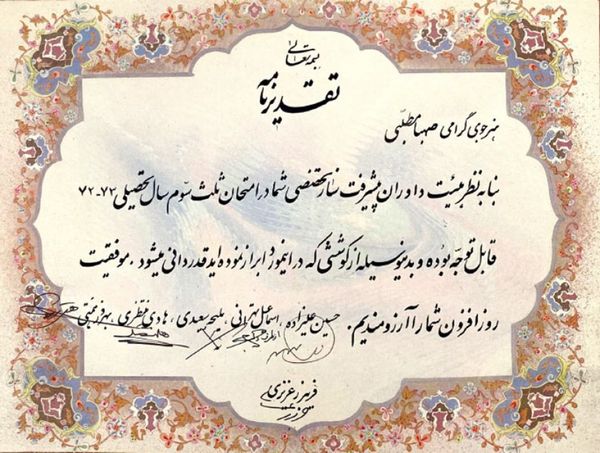 بسمه تعالی
تقدیرنامه
هنرجوی گرامی صهبا مطلبی
بنا به نظر هیئت داوران پیشرفت ساز تخصصی شما در امتحان ثلث سوم سال تحصیلی ۷۳-۷۲
قابل توجه بوده و بدینوسیله از کوششی که در اینمورد ابراز نموده اید قدردانی میشود. موفقیت
روزافزون شما را آرزومندیم. حسین علیزاده، اسماعیل تهرانی، ملیحه سعیدی، هادی منتظری،
فریبرز عزیزی